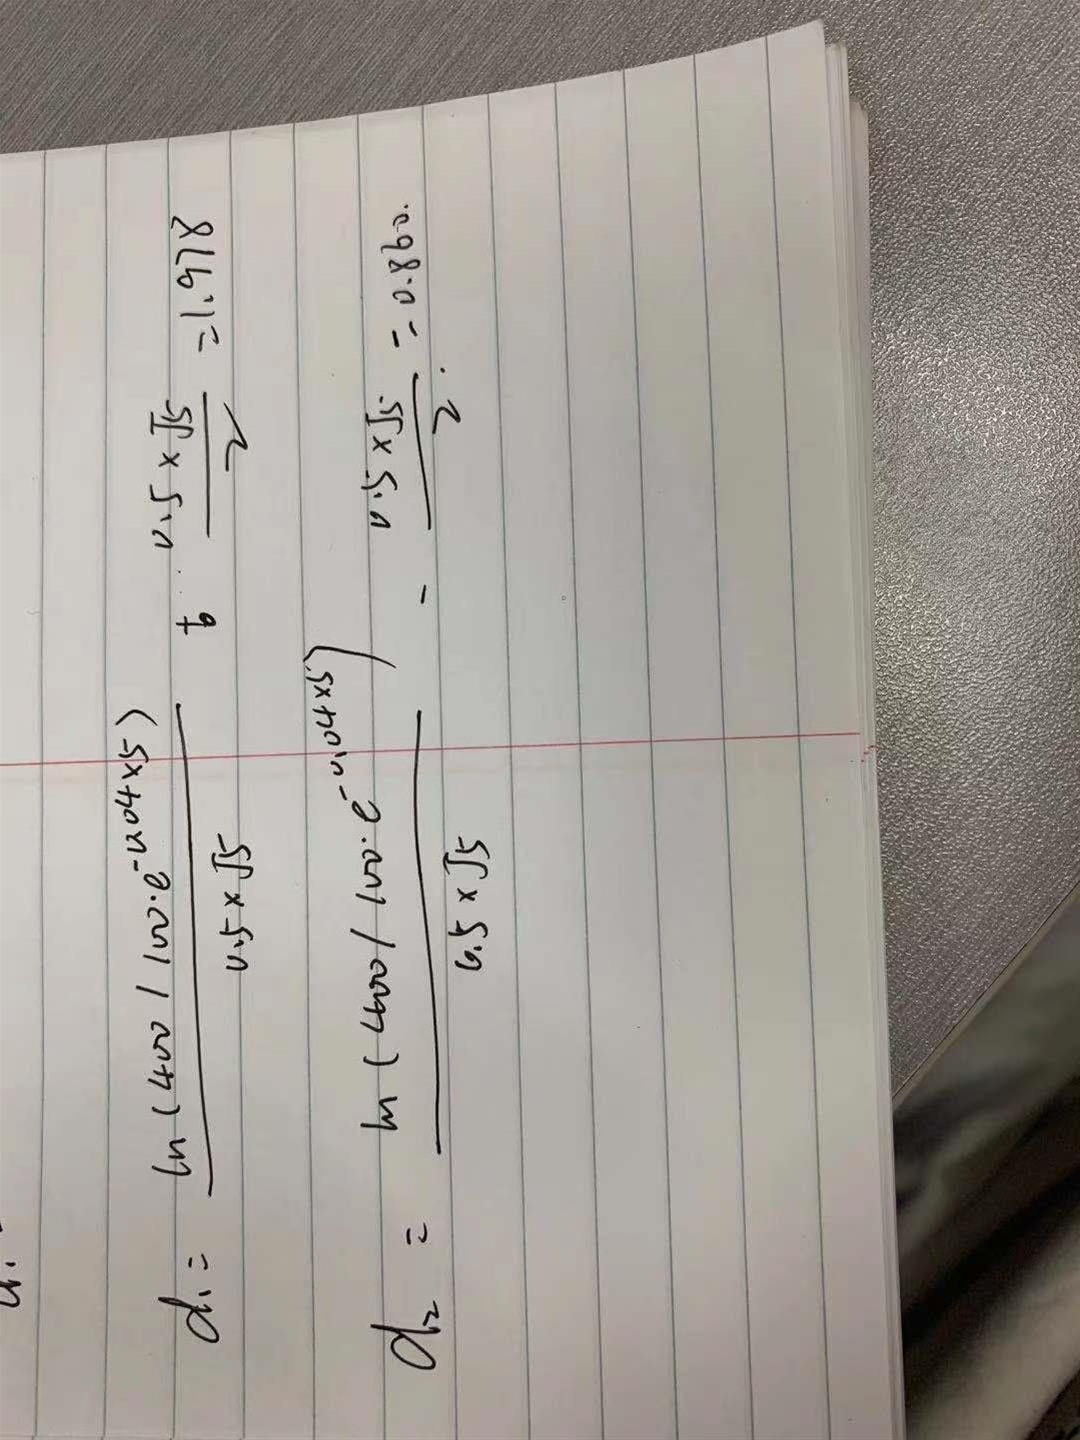 d₁ = ln(400 / 100·e^-0.04×5) / 0.5×√5 + 0.5×√5 / 2 = 1.978
d₂ = ln(400 / 100·e^-0.04×5) / 0.5×√5 - 0.5×√5 / 2 = 0.860.